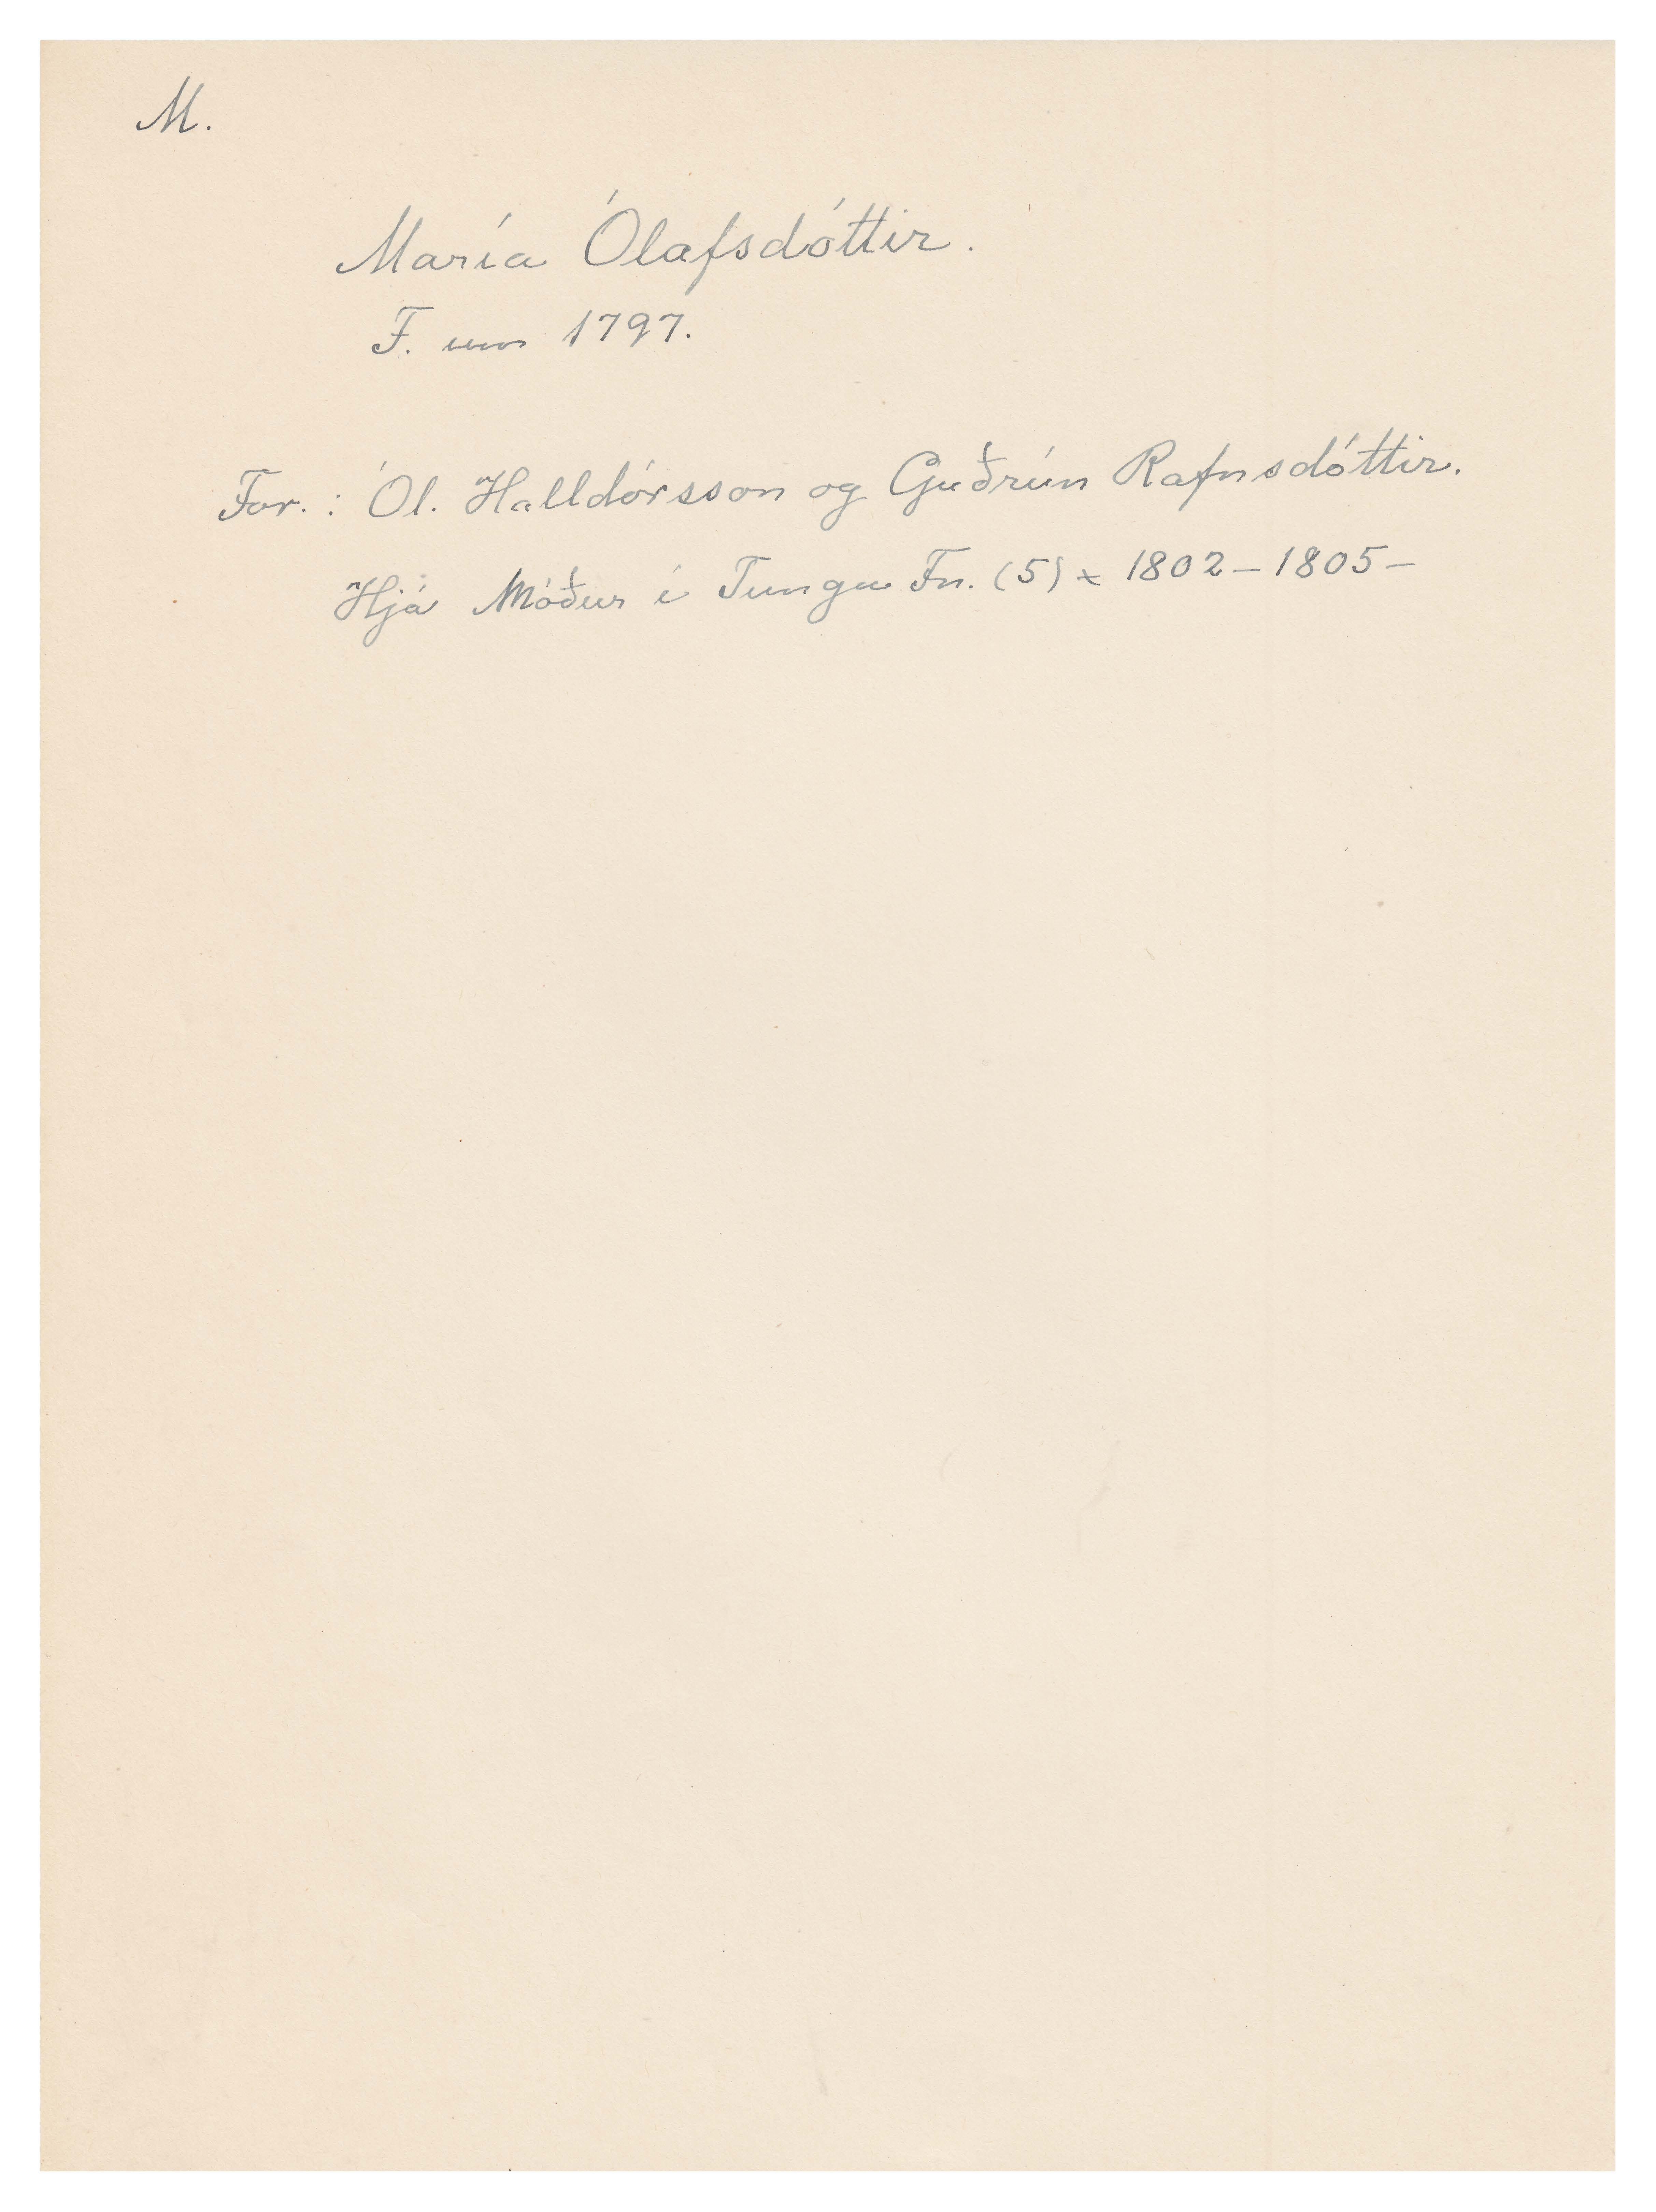 M.
María Ólafsdóttir.
F. um 1797.
For.: Ól. Halldórsson og Guðrún Rafnsdóttir.
Hjá Móður í Tungu Fn. (5) x 1802-1805-